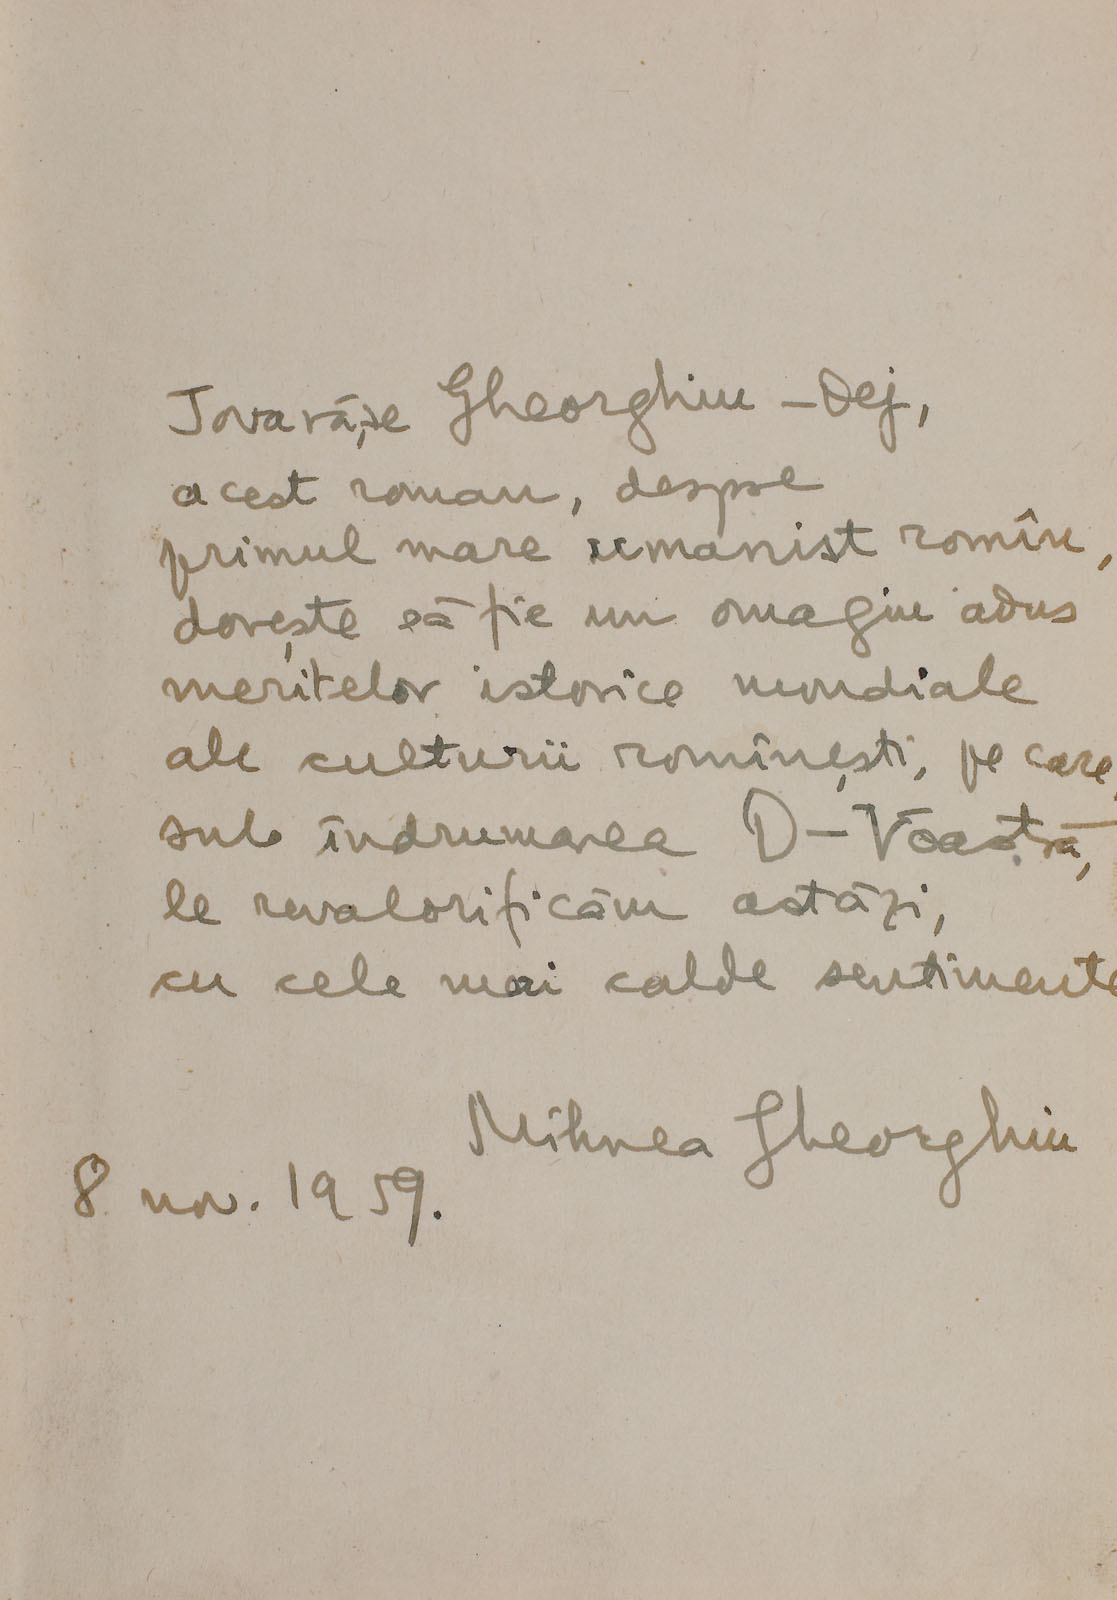 Tovarășe Gheorghiu-Dej,
acest roman, despre
primul mare umanist romîn,
dorește să fie un omagiu adus
meritelor istorice mondiale
ale culturii romînești, pe care,
sub îndrumarea D-Voastră,
le revalorificăm astăzi,
cu cele mai calde sentimente
Mihnea Gheorghiu
8 nov. 1959.